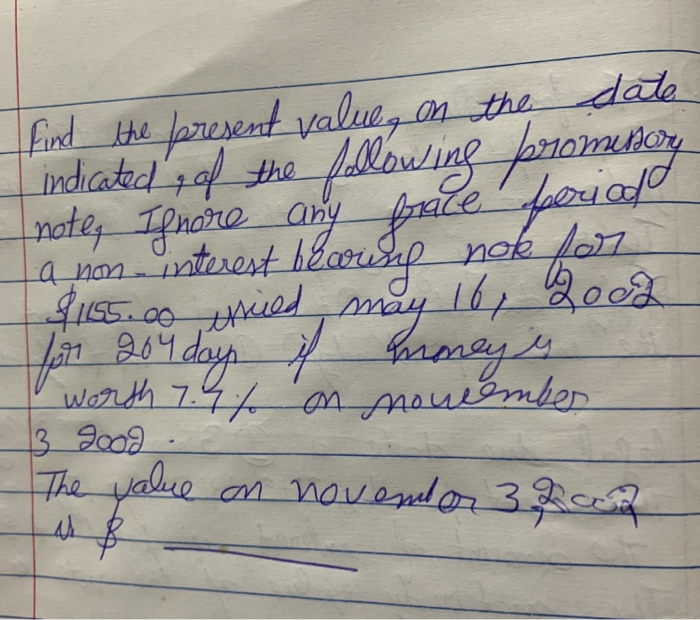 Find the present value, on the date
indicated, of the following promissory
note, Ignore any grace period
a non-interest bearing note for
$1155.00 issued may 16, 2002
for 204 days if money is
worth 7.4% on november
3 2002.
The value on november 3, 2002
is $